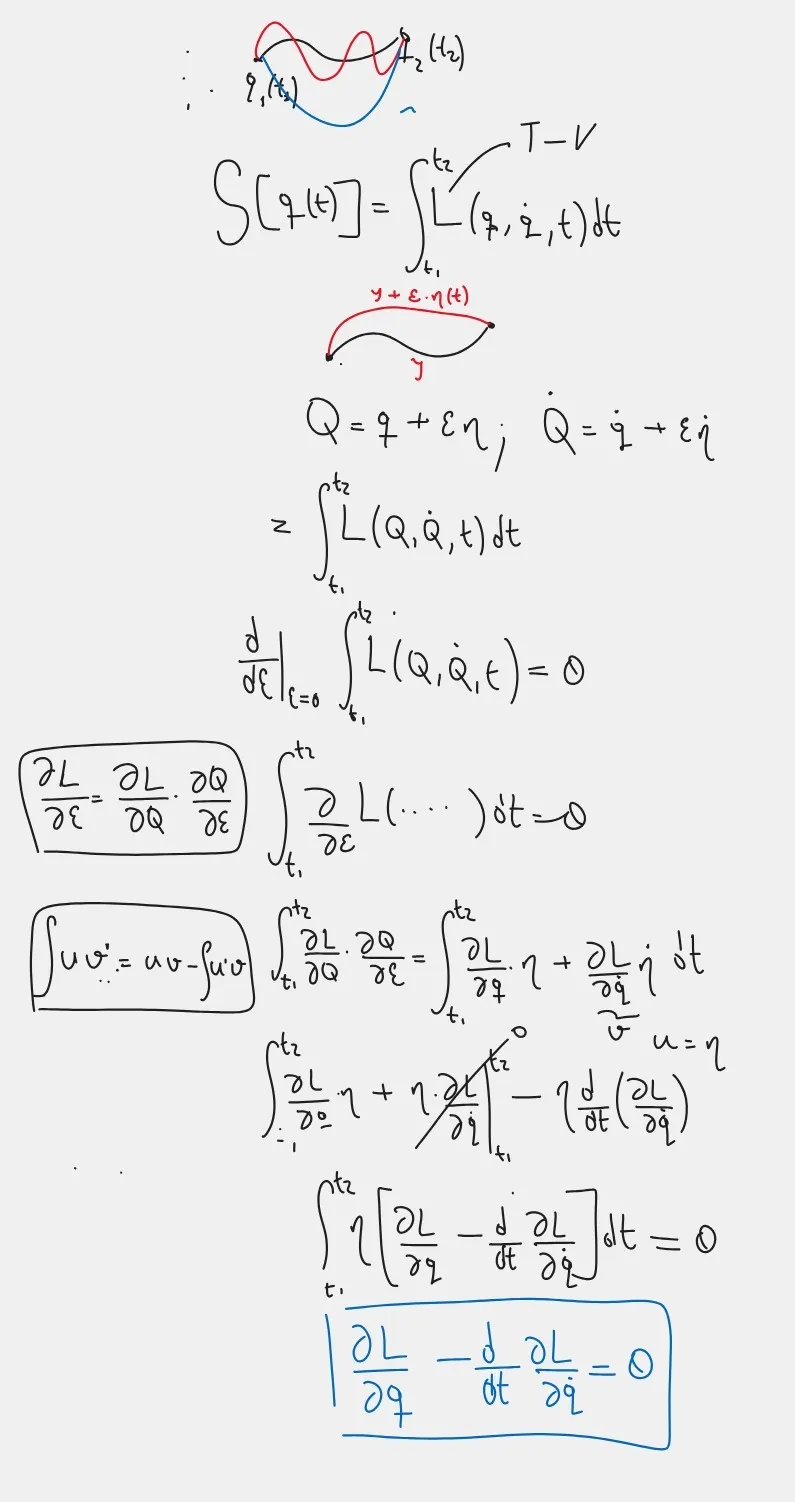 q₁(t₁) q₂(t₂)
T-V
S[q(t)] = ∫_{t₁}^{t₂} L(q, q̇, t)dt
y + ε·η(t)
y
Q = q + εη; Q̇ = q̇ + εη̇
= ∫_{t₁}^{t₂} L(Q, Q̇, t)dt
d/dε|_{ε=0} ∫_{t₁}^{t₂} L(Q, Q̇, t) = 0
∂L/∂ε = ∂L/∂Q · ∂Q/∂ε ∫_{t₁}^{t₂} ∂/∂ε L(····)dt = 0
∫uv' = uv - ∫u'v ∫_{t₁}^{t₂} ∂L/∂Q · ∂Q/∂ε = ∫_{t₁}^{t₂} ∂L/∂q · η + ∂L/∂q̇ η̇ dt
v u = η
∫^{t₂} ∂L/∂q · η + η · ∂L/∂q̇ |_{t₁}^{t₂} 0 - η d/dt (∂L/∂q̇)
∫_{t₁}^{t₂} η [∂L/∂q - d/dt ∂L/∂q̇] dt = 0
∂L/∂q - d/dt ∂L/∂q̇ = 0